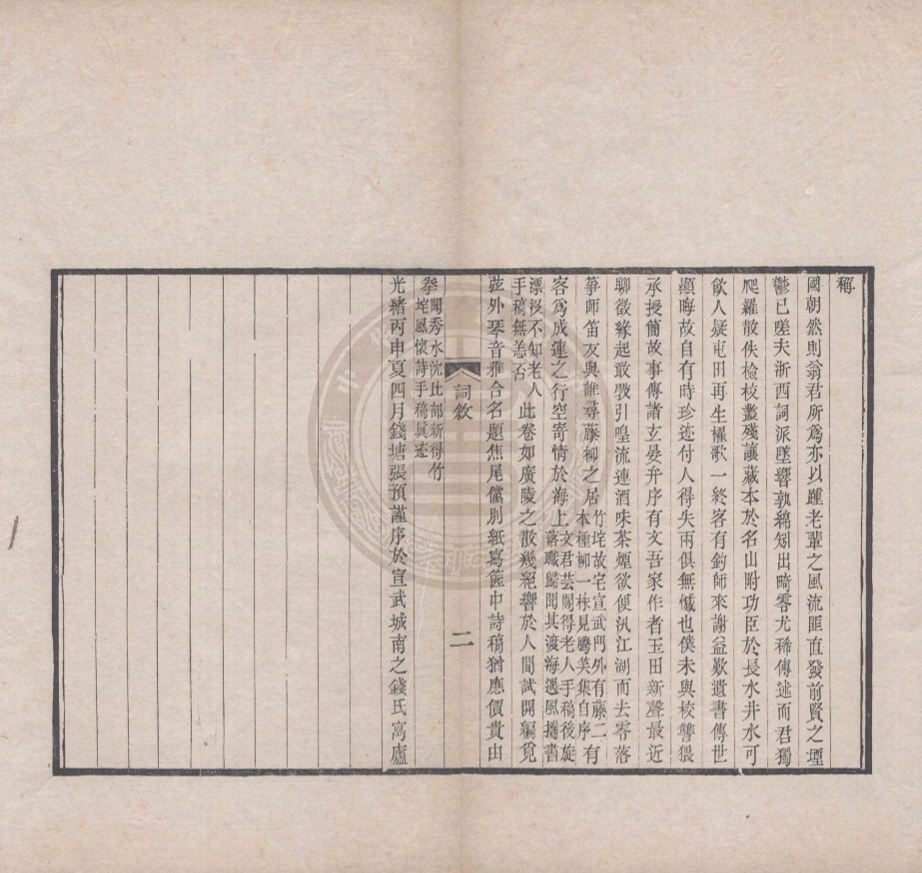 稱
國朝然則翁君所爲亦以踵老輩之風流匪直發前賢之堙
鬱已嗟夫浙西詞派墜響孰綿矧出畸零尤稀傳述而君獨
爬羅散佚檢校叢殘讓藏本於名山附功臣於長水井水可
飲人疑屯田再生櫂歌一終客有鈞師來謝益歎遺書傳世
顯晦故自有時珍迹付人得失兩俱無憾也僕未與校讐猥
承授簡故事傳諸玄晏弁序有文吾家作者玉田新聲最近
聊徵緣起敢戤引喤流連酒味茶煙欲便汎江湖而去零落
箏師笛友與誰尋藤柳之居竹垞故宅宣武門外有藤二有
本檉柳一株見騰笑集自序
客爲成連之行空寄情於海上文君芸閣得老人手稿後旋
落職歸聞其渡海遇風攜書
漂沒不知老人
手稿無恙否
此卷如廣陵之散幾絕響於人間試開編覓
弦外琴音雅合名題焦尾儻別紙寫篋中詩稿猶應價貴由
拳聞秀水沈比部新得竹
垞風懷詩手稿眞迹
光緒丙申夏四月錢塘張預謹序於宣武城南之錢氏寓廬
詞敘
二